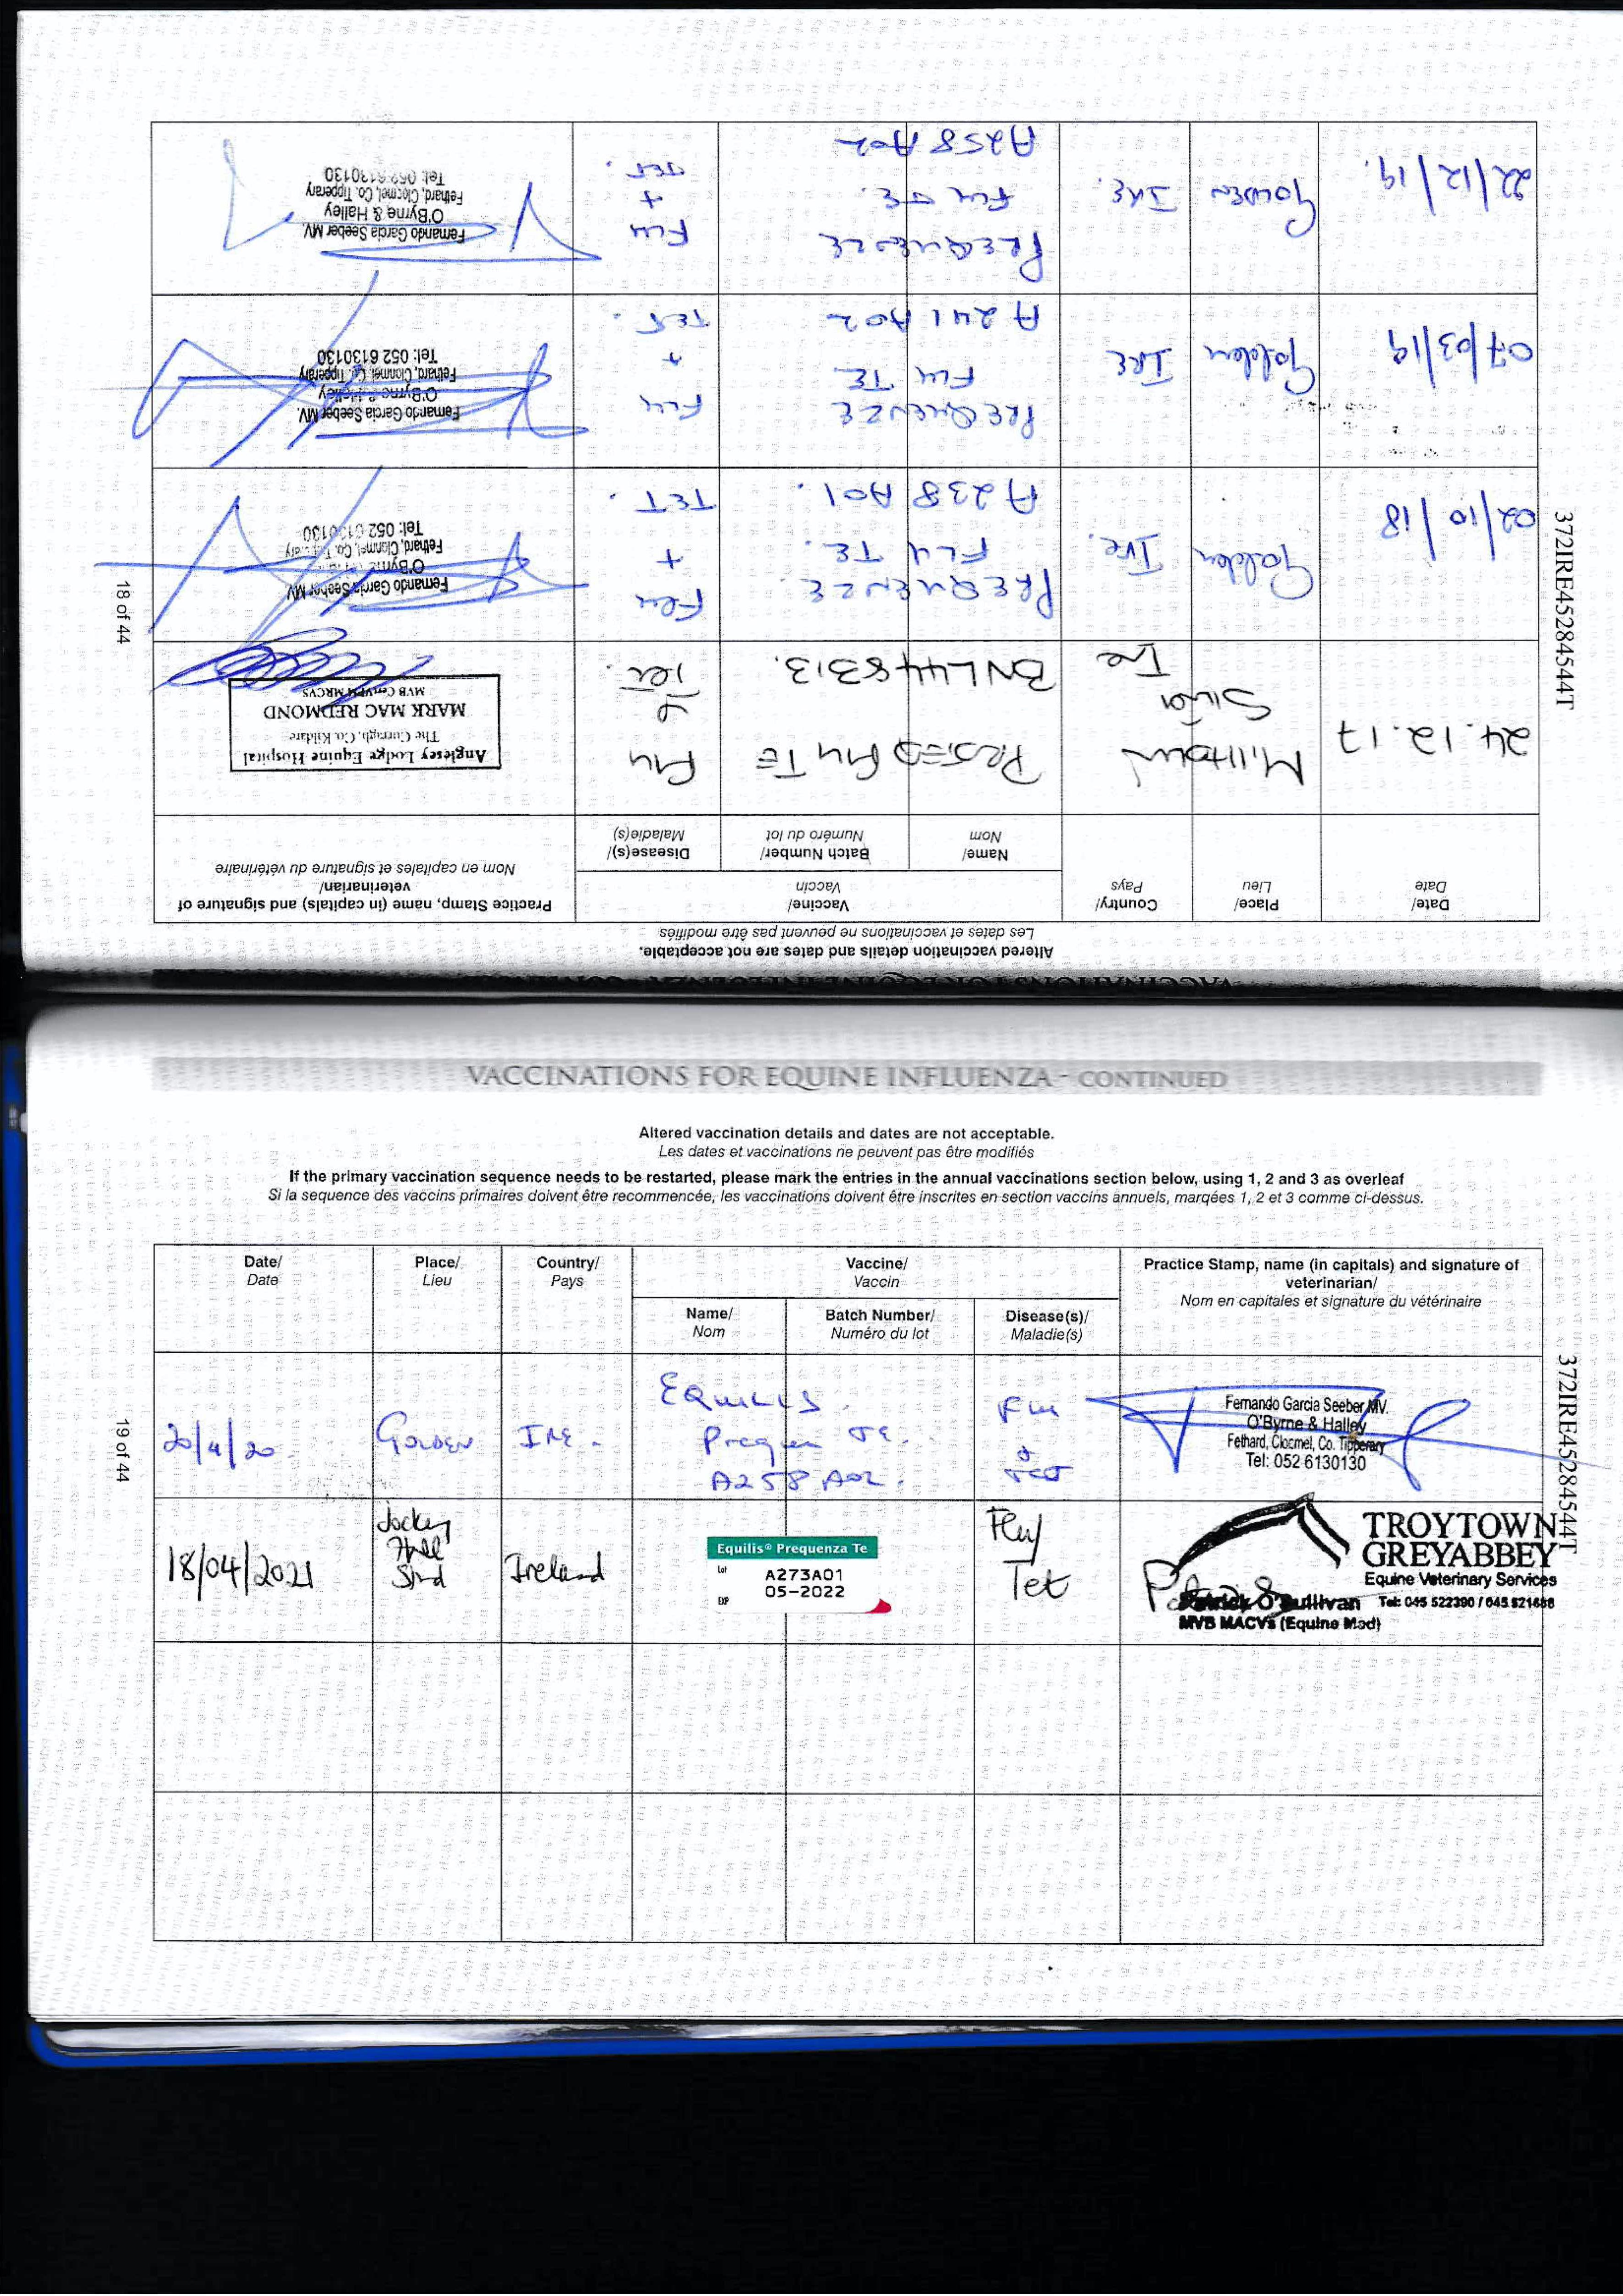 VACCINATIONS FOR EQUINE INFLUENZA - CONTINUED
Altered vaccination details and dates are not acceptable.
Les dates et vaccinations ne peuvent pas être modifiés
Date/
Date
Place/
Lieu
Country/
Pays
Vaccine/
Vaccin
Name/
Nom
Batch Number/
Numéro du lot
Disease(s)/
Maladie(s)
Practice Stamp, name (in capitals) and signature of
veterinarian/
Nom en capitales et signature du vétérinaire
24.12.17
Milltown
Ire
Flu TE
BNL448313.
Flu
&
Tet.
Anglesey Lodge Equine Hospital
The Curragh, Co. Kildare
MARK MAC REDMOND
MVB CertVPM MRCVS
02/10/18
Golden
Ire.
PREQUENZE.
FLU TE.
A238 A01.
Flu
+
TET.
Fernando Garcia Seeber MV.
O'Byrne & Halley
Fethard, Clonmel, Co. Tipperary
Tel: 052 6130130
07/03/19
Golden
IRE
PREQUENZE
FLU TE
A 241 A02
Flu
+
TET.
Fernando Garcia Seeber MV.
O'Byrne & Halley
Fethard, Clonmel, Co. Tipperary
Tel: 052 6130130
22/12/19.
GOLDEN
IRE.
PREQUENZE
FLU TE.
A258 A02
FLU
+
TET.
Fernando Garcia Seeber MV.
O'Byrne & Halley
Fethard, Clocmel, Co. Tipperary
Tel: 052 6130130
372IRE45284544T
18 of 44
VACCINATIONS FOR EQUINE INFLUENZA - CONTINUED
Altered vaccination details and dates are not acceptable.
Les dates et vaccinations ne peuvent pas être modifiés
If the primary vaccination sequence needs to be restarted, please mark the entries in the annual vaccinations section below, using 1, 2 and 3 as overleaf
Si la sequence des vaccins primaires doivent être recommencée, les vaccinations doivent être inscrites en section vaccins annuels, marqées 1, 2 et 3 comme ci-dessus.
Date/
Date
Place/
Lieu
Country/
Pays
Vaccine/
Vaccin
Name/
Nom
Batch Number/
Numéro du lot
Disease(s)/
Maladie(s)
Practice Stamp, name (in capitals) and signature of
veterinarian/
Nom en capitales et signature du vétérinaire
20/4/20
GOLDEN
IRE.
EQUILIS.
Prequen TE.
A258 A02.
Flu
&
Tet
Fernando Garcia Seeber MV.
O'Byrne & Halley
Fethard, Clocmel, Co. Tipperary
Tel: 052 6130130
18/04/2021
Jockey
Hall
Stud
Ireland
Equilis® Prequenza Te
Lot A273A01
EXP 05-2022
Flu/
Tet
TROYTOWN
GREYABBEY
Equine Veterinary Services
Patrick O'Sullivan Tel: 045 522390 / 045 521686
MVB MACVs (Equine Med)
372IRE45284544T
19 of 44